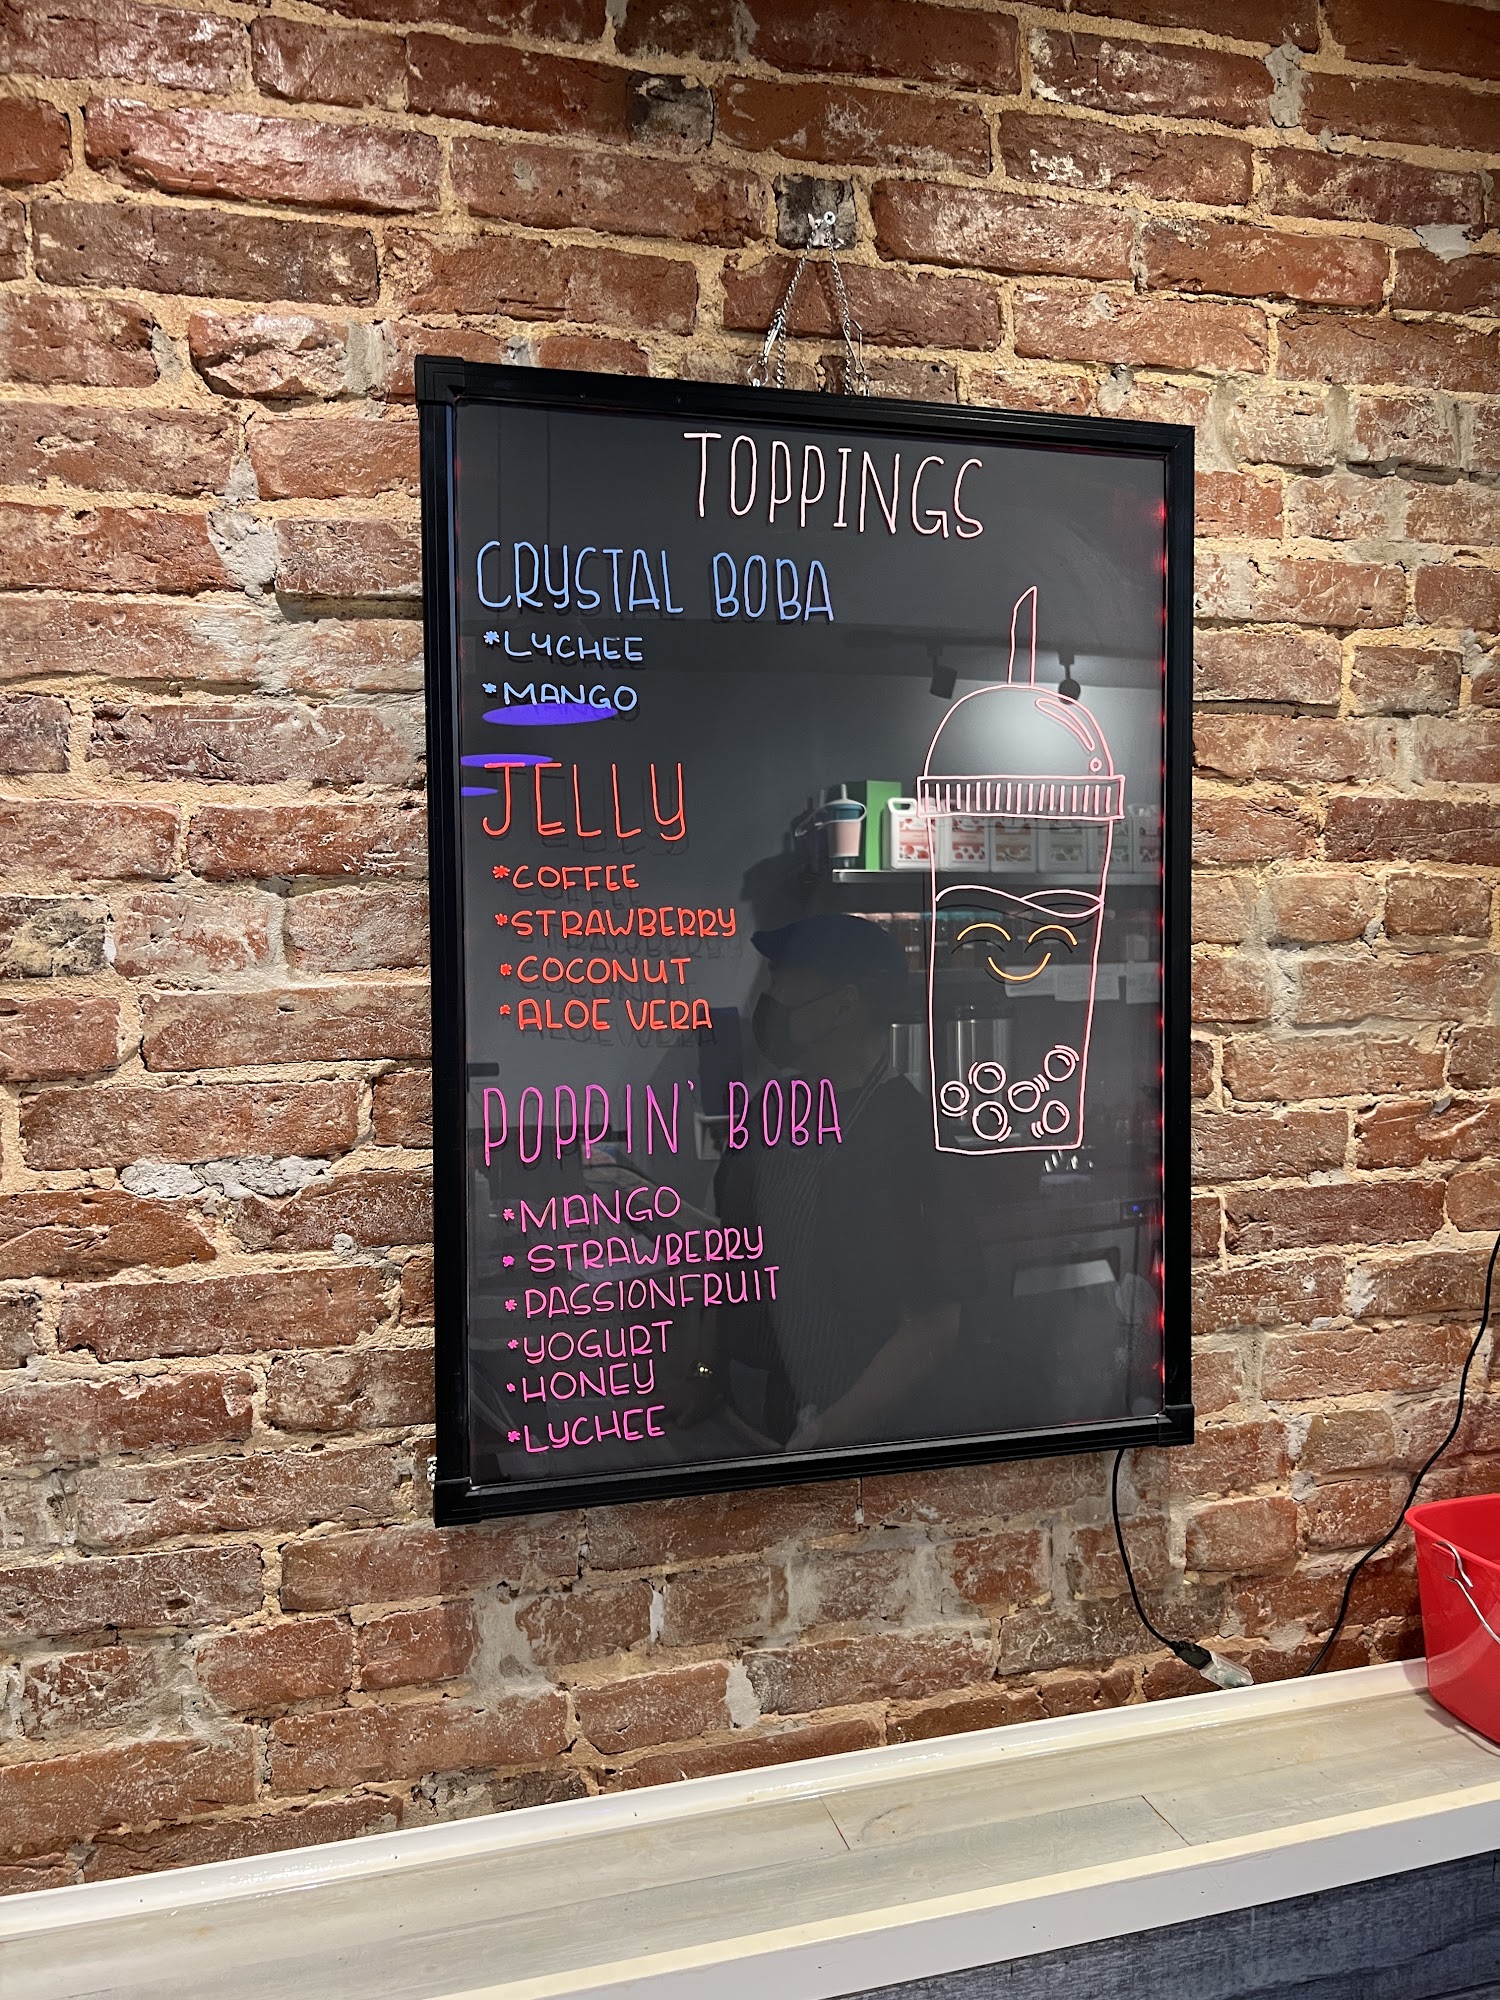 TOPPINGS
CRYSTAL BOBA
*LYCHEE
*MANGO
JELLY
*COFFEE
*STRAWBERRY
*COCONUT
*ALOE VERA
POPPIN' BOBA
*MANGO
*STRAWBERRY
*PASSIONFRUIT
*YOGURT
*HONEY
*LYCHEE